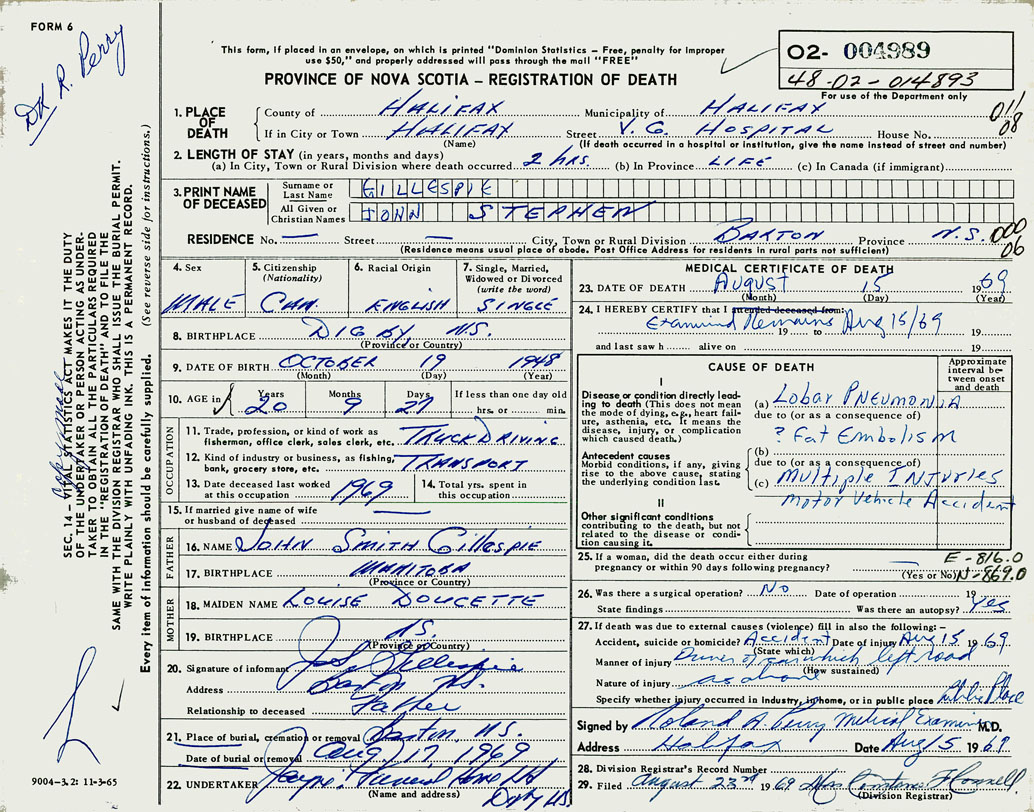 FORM 6
DR R. Perry
This form, if placed in an envelope, on which is printed "Dominion Statistics – Free, penalty for improper
use $50," and properly addressed will pass through the mail "FREE"
PROVINCE OF NOVA SCOTIA – REGISTRATION OF DEATH
O2- 004989
48-02-014893
For use of the Department only
011
08
1. PLACE OF DEATH
County of HALIFAX Municipality of HALIFAX
If in City or Town HALIFAX Street V. G. HOSPITAL House No.
(Name) (If death occurred in a hospital or institution, give the name instead of street and number)
2. LENGTH OF STAY (in years, months and days)
(a) In City, Town or Rural Division where death occurred 2 hrs. (b) In Province LIFE (c) In Canada (if immigrant)
3. PRINT NAME OF DECEASED
Surname or Last Name GILLESPIE
All Given or Christian Names JOHN STEPHEN
RESIDENCE No. — Street — City, Town or Rural Division BARTON Province N.S.
(Residence means usual place of abode. Post Office Address for residents in rural parts not sufficient)
000
06
4. Sex MALE
5. Citizenship (Nationality) CAN.
6. Racial Origin ENGLISH
7. Single, Married, Widowed or Divorced (write the word) SINGLE
8. BIRTHPLACE DIGBY, N.S.
(Province or Country)
9. DATE OF BIRTH OCTOBER 19 1948
(Month) (Day) (Year)
10. AGE in Years 20 Months 9 Days 27 If less than one day old
hrs. or min.
OCCUPATION
11. Trade, profession, or kind of work as fisherman, office clerk, sales clerk, etc. TRUCK DRIVING
12. Kind of industry or business, as fishing, bank, grocery store, etc. TRANSPORT
13. Date deceased last worked at this occupation 1969
14. Total yrs. spent in this occupation
15. If married give name of wife or husband of deceased —
FATHER
16. NAME JOHN SMITH GILLESPIE
17. BIRTHPLACE MANITOBA
(Province or Country)
MOTHER
18. MAIDEN NAME LOUISE DOUCETTE
19. BIRTHPLACE N.S.
(Province or Country)
20. Signature of informant J. S. Gillespie
Address Barton N.S.
Relationship to deceased Father
21. Place of burial, cremation or removal Barton, N.S.
Date of burial or removal Aug 17, 1969
22. UNDERTAKER Funeral Home Ltd
(Name and address) Digby NS
MEDICAL CERTIFICATE OF DEATH
23. DATE OF DEATH August 15 1969
(Month) (Day) (Year)
24. I HEREBY CERTIFY that I attended deceased from:
Examined Remains Aug 15/69
19 to 19
and last saw h alive on 19
CAUSE OF DEATH
Approximate interval between onset and death
I
Disease or condition directly leading to death (This does not mean the mode of dying, e.g., heart failure, asthenia, etc. It means the disease, injury, or complication which caused death.)
(a) Lobar PNEUMONIA
due to (or as a consequence of)
? Fat Embolism
Antecedent causes
Morbid conditions, if any, giving rise to the above cause, stating the underlying condition last.
(b)
due to (or as a consequence of)
(c) Multiple INjuries
Motor Vehicle Accident
II
Other significant conditions
contributing to the death, but not related to the disease or condition causing it.
25. If a woman, did the death occur either during pregnancy or within 90 days following pregnancy? —
(Yes or No)
E-816.0
N-869.0
26. Was there a surgical operation? NO Date of operation 19
State findings Was there an autopsy? Yes
27. If death was due to external causes (violence) fill in also the following:–
Accident, suicide or homicide? Accident Date of injury Aug 15 1969
(State which)
Manner of injury Driver of car which left road
(How sustained)
Nature of injury as above
Specify whether injury occurred in industry, in home, or in public place Public Place
Signed by Roland A. Perry Medical Examiner M.D.
Address Halifax Date Aug 15 1969
28. Division Registrar's Record Number
29. Filed August 23rd 1969 Mrs
(Division Registrar)
SEC. 14 – VITAL STATISTICS ACT MAKES IT THE DUTY
OF THE UNDERTAKER OR PERSON ACTING AS UNDER-
TAKER TO OBTAIN ALL THE PARTICULARS REQUIRED
IN THE "REGISTRATION OF DEATH" AND TO FILE THE
SAME WITH THE DIVISION REGISTRAR WHO SHALL ISSUE THE BURIAL PERMIT.
WRITE PLAINLY WITH UNFADING INK. THIS IS A PERMANENT RECORD.
Every item of information should be carefully supplied. (See reverse side for instructions.)
9004–3.2: 11-3-65